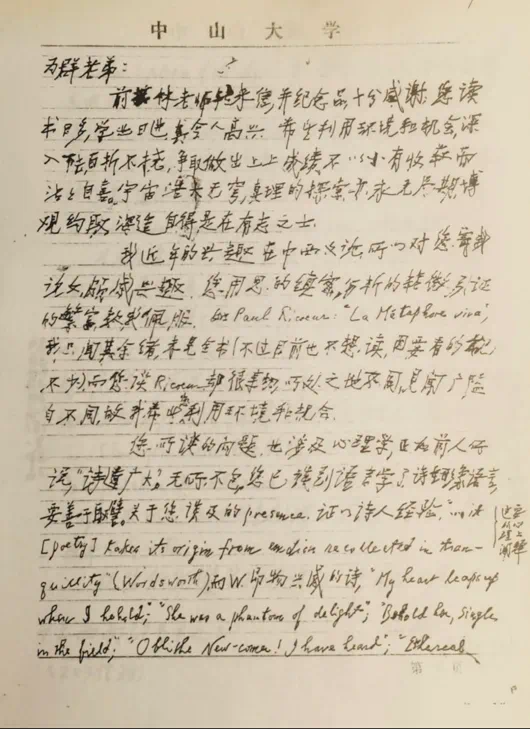 中山大学
为群老弟：
前林老师转来信，并纪念品，十分感谢。您读
书日多，学业日进，真令人高兴。希望利用环境和机会，深
入百折不挠，争取做出上上成绩，不以小有收获而
沾沾自喜。宇宙浩无穷，真理的探索亦永无尽期，博
观约取，深造自得，是在有志之士。
我近年的兴趣在中西文论，所以对您寄我
论文，颇感兴趣。您用思的缜密，分析的精微，引证
的繁富，较我佩服。Paul Ricoeur: "La Métaphore vive"
我只闻其余绪，未见全书（不过目前也不想读，因要看的
不少）而您读Ricoeur却很其所处之地不同，见闻广隘
自不同，故我希望利用环境和机会。
您所谈的问题，也涉及心理学，正如前人所
说，"诗道广大"，无所不包，您已辨别语言学了诗语言，
要善于取譬。关于您谈及的presence，证以诗人经验，"it
[poetry] takes its origin from emotion recollected in tran-
quility" (Wordsworth)，而W.的诗，"My heart leaps up
when I behold"; "She was a phantom of delight"; "Behold her, single
in the field"; "O blithe New-comer! I have heard"; "Ethereal
第 页